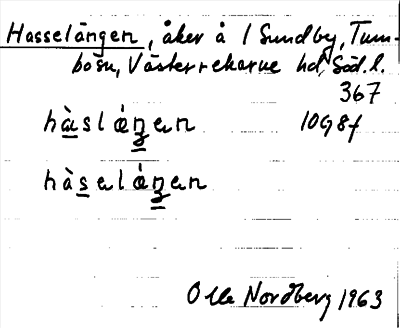 Hasselängen, åker å 1 Sundby, Tum-
bo sn, Västerrekarne hd, Söd. l.
367
hàslá̤ŋen 10G8f
hàselá̤ŋen
Olle Nordberg 1963